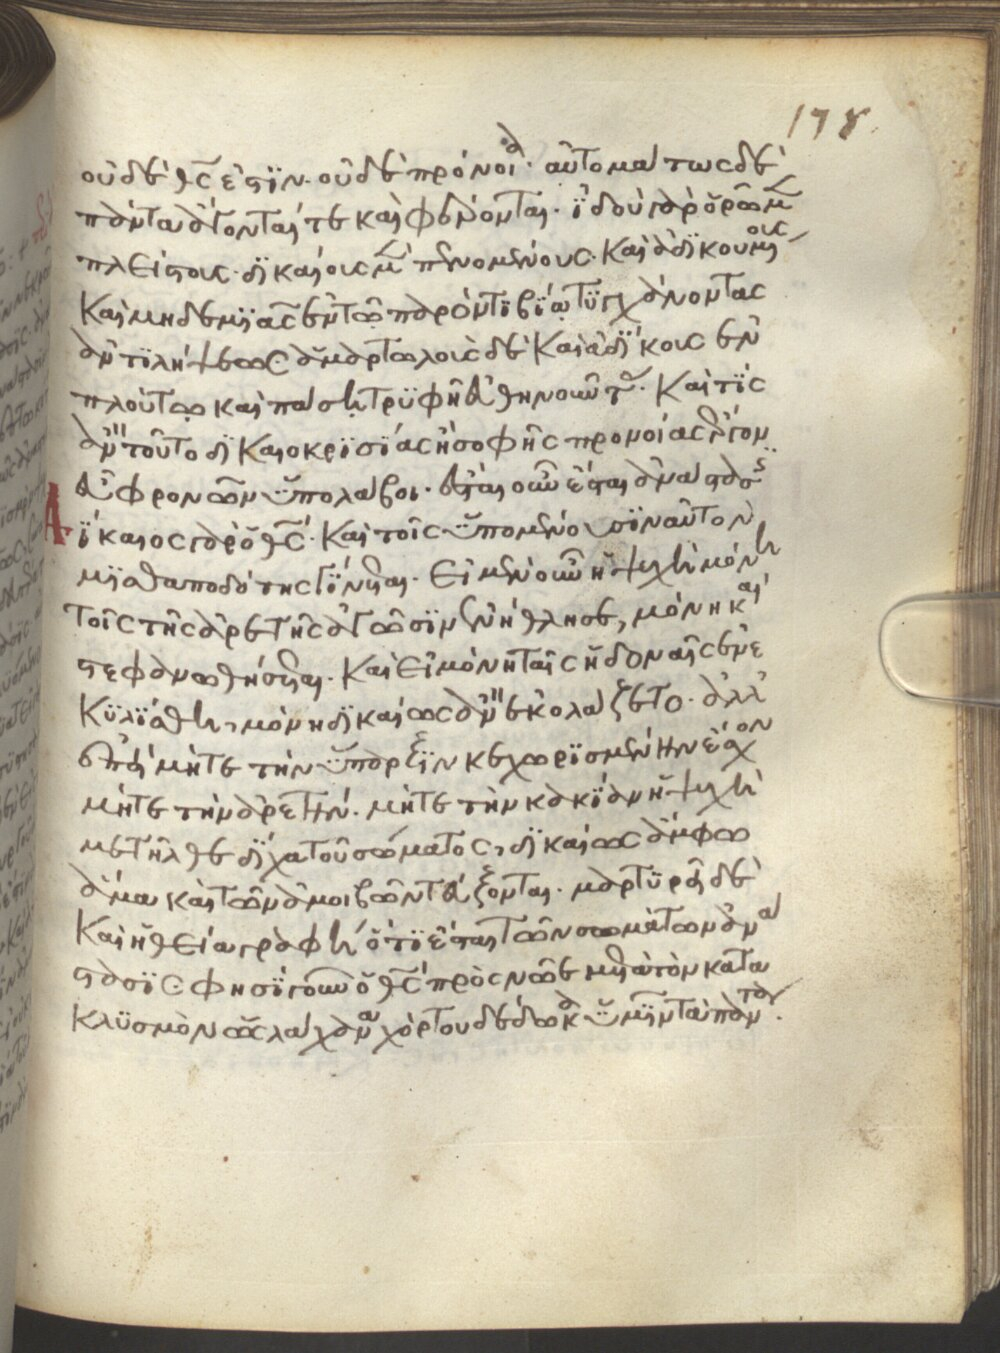 178.
οὐδὲ θ̅ς̅ ἐστϊν· οὐδὲ πρόνοια· αὐτομάτως δὲ
πάντα ἄγονταί τε καὶ φέρονται· ϊδοὺ γὰρ ὁρῶμεν
πλείστους· δϊκαίους μὲν πενομένους· καὶ ἀδϊκουμένους
καὶ μηδεμϊᾶς ἐν τῶ παρόντϊ βίω τϋγχάνοντας
ἀντϊλήψεως ἁμαρτωλοὺς δὲ καὶ ἀδΐκους ἐν
πλούτω καὶ πάση τρϋφῆ εὐθηνοῦντας· καὶ τΐς
ἂν τοῦτο δϊκαιοκρϊσΐας ἢ σοφῆς προνοίας ἔργον
εὖ φρονῶν ὑπολάβοι· ἔσται οὖν ἔσται ἀνάστασϊς·
Δΐκαιος γὰρ ὁ θ̅ς̅· καὶ τοῖς ὑπομένουσϊν αὐτὸν
μϊσθαποδότης γΐνεται· Εἰ μὲν οὖν ἡ ψυχὴ μόνη
τοῖς τῆς ἀρετῆς ἀγῶσϊν ἐνήθλησε, μόνη καὶ
στεφανωθήσεται· καὶ εἰ μόνη ταῖς ἡδοναῖς ἐνε
κϋλΐσθη, μόνη δϊκαίως ἂν ἐκολάζετο· ἀλλ'
ἐπεὶ μήτε τὴν ὕπαρξϊν κεχωρϊσμένην ἔσχον
μήτε τὴν ἀρετὴν· μήτε τὴν κακΐαν ἡ ψυχὴ
μετῆλθε δΐχα τοῦ σώματος, δϊκαίως ἄμφω
ἅμα καὶ τῶν ἀμοιβῶν τεύξονται· μαρτϋρεῖ δὲ
καὶ ἡ θεία γραφὴ ὅτϊ ἔσται τῶν σωμάτων ἀνά
στασϊς φησΐ γοῦν ὁ θ̅ς̅ πρὸς νῶε μετὰ τὸν κατα
κλϋσμὸν ὡς λάχανα χόρτου δέδωκα ὑμῖν τὰ πάντα·